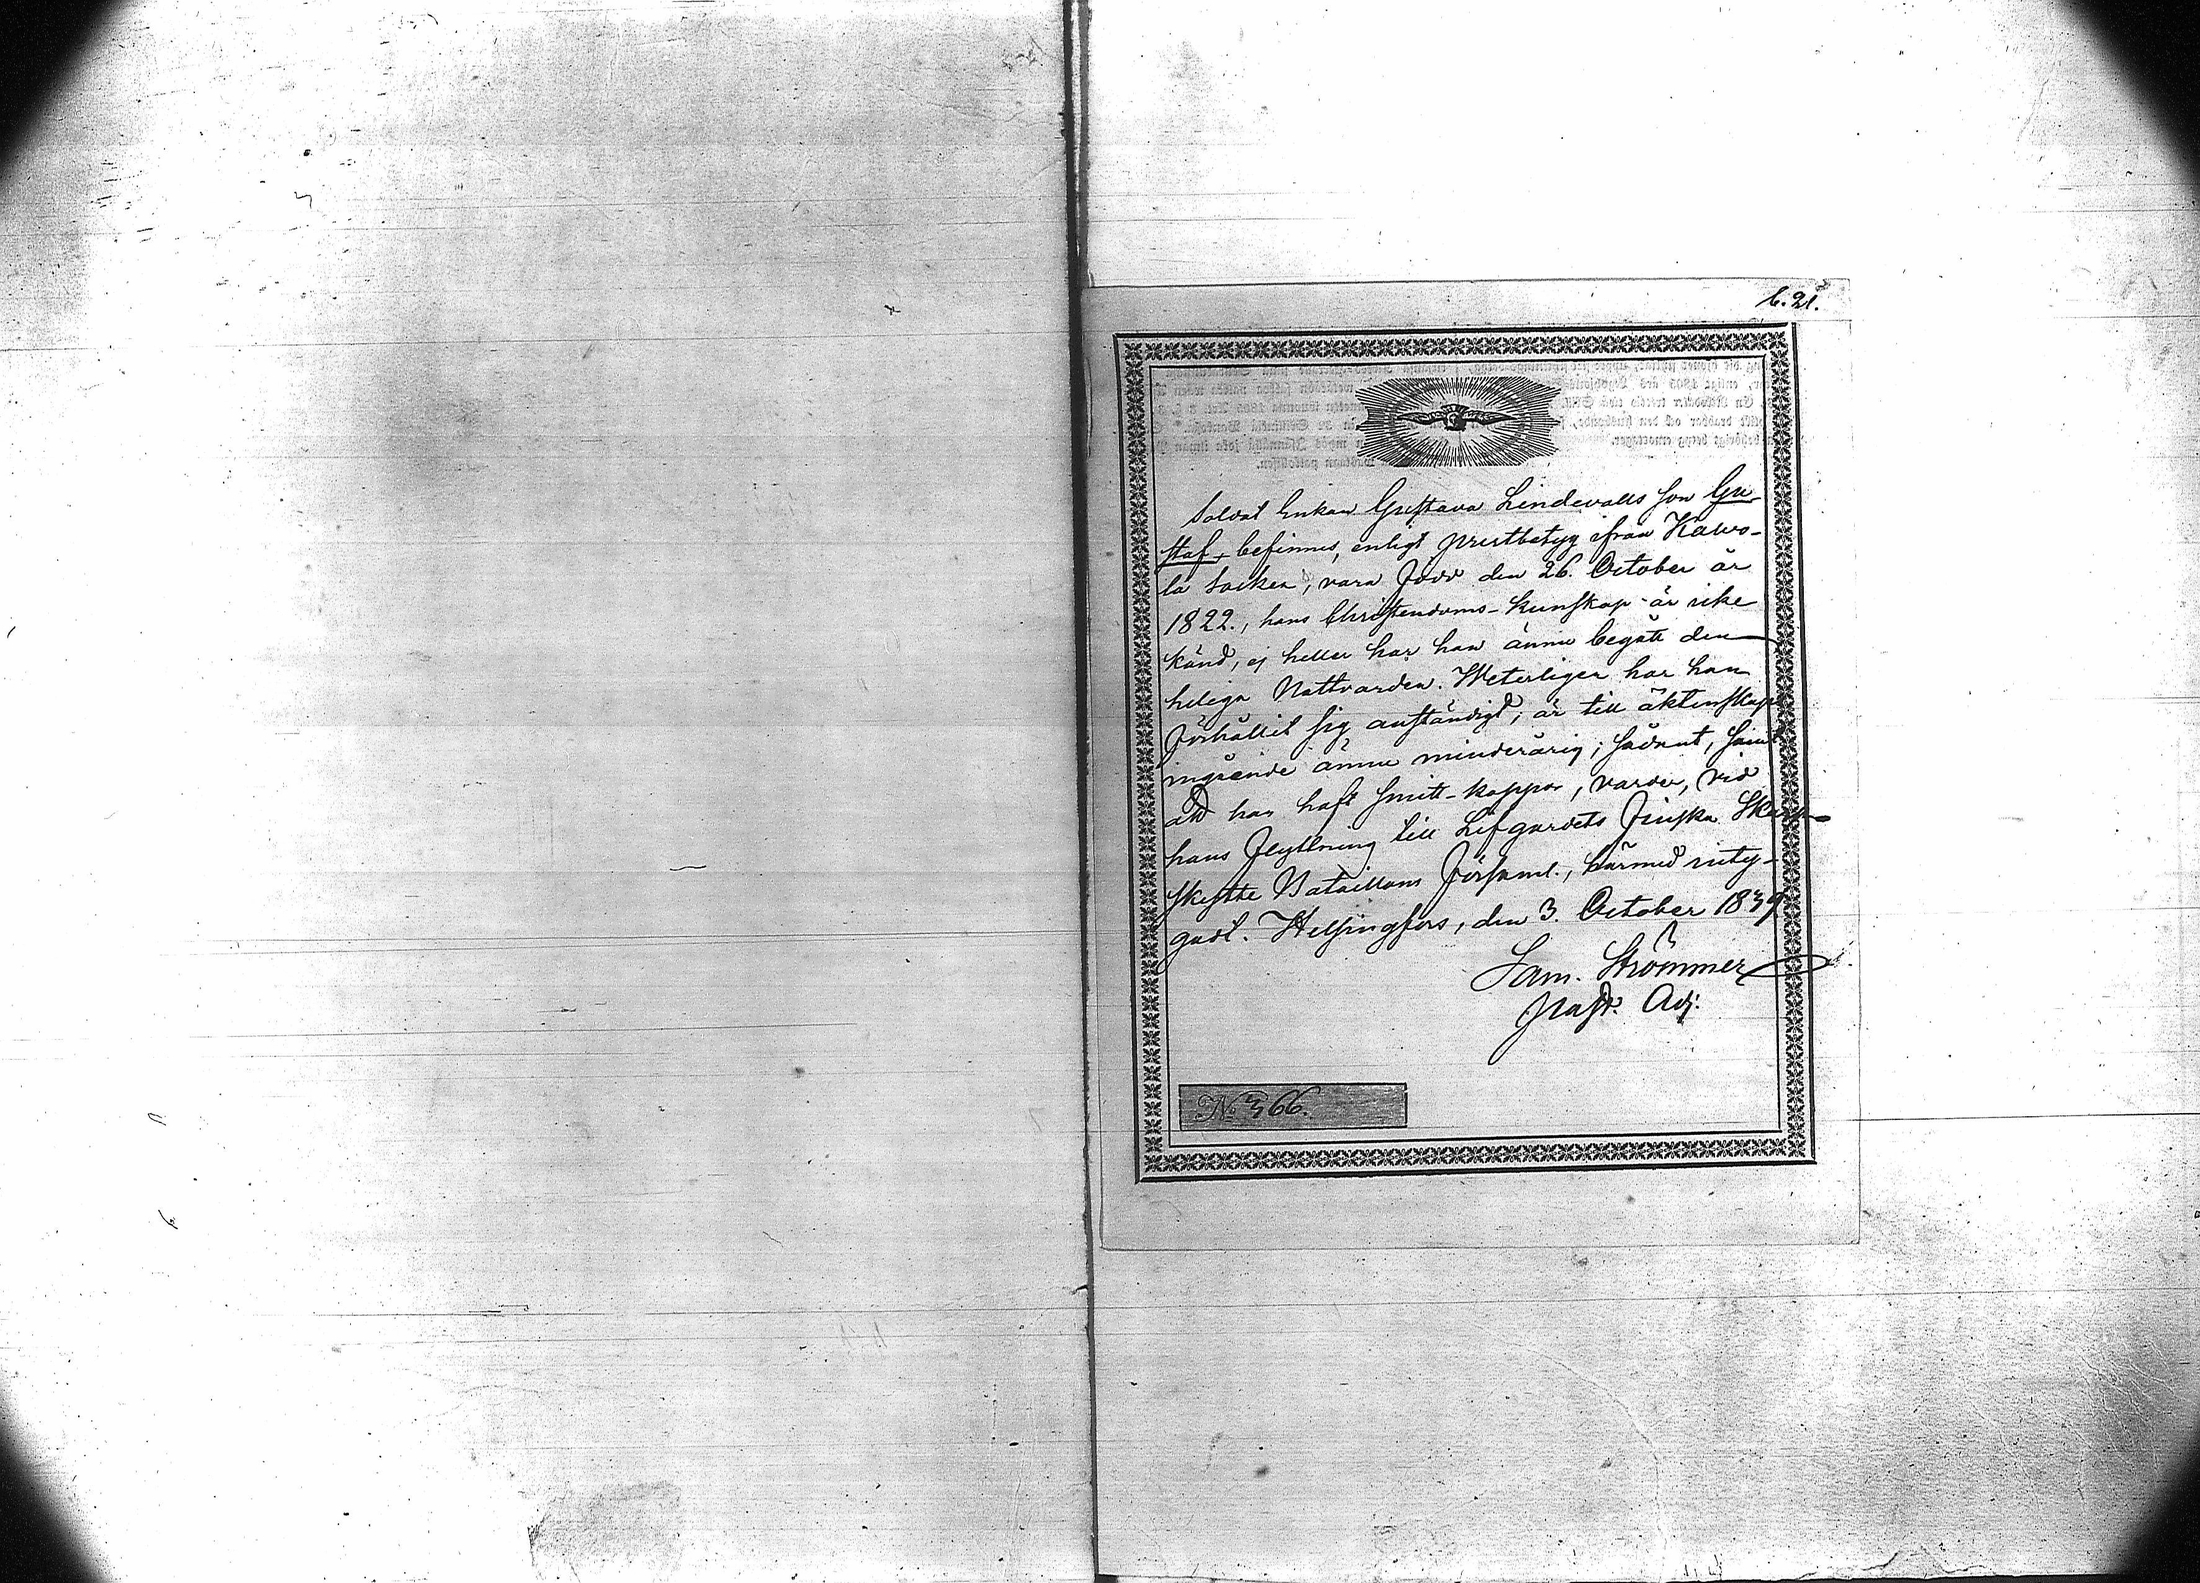 b. 21.
Soldat Enkan Gustava Lindevalls son Gu-
staf, befinnes, enligt prestbetyg ifrån Kawo-
la Socken, vara född den 26. October år
1822., hans Christendoms-kunskap är icke
känd, ej heller har han ännu begått den
heliga Nattvarden. Weterligen har han
förhållit sig anständigt; är till äktenskaps
ingående ännu minderårig; sådant, samt
att han haft smitt-koppor, varder, vid
hans flyttning till Lifgardets Finska Skarp-
skytte Bataillons Församl., härmed
den 3. October 1839
gadt. Helsingfors,
Sam. Strömmer
Past. Adj.
No 366.